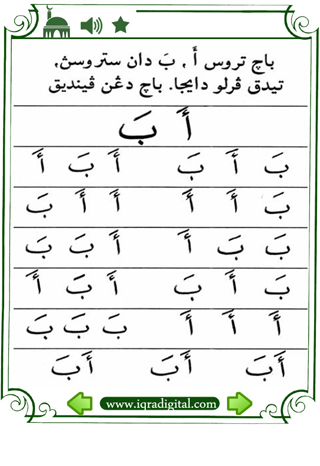 باچ تروس أَ , بَ دان ستروسڽ,
تيدق ڤرلو دايجا. باچ دڠن ڤينديق
أَ بَ
بَ أَ بَ أَ بَ أَ
بَ أَ أَ أَ أَ بَ
بَ بَ أَ أَ بَ بَ
بَ أَ بَ أَ بَ أَ
أَ أَ أَ بَ بَ بَ
أَبَ أَبَ أَبَ
www.iqradigital.com